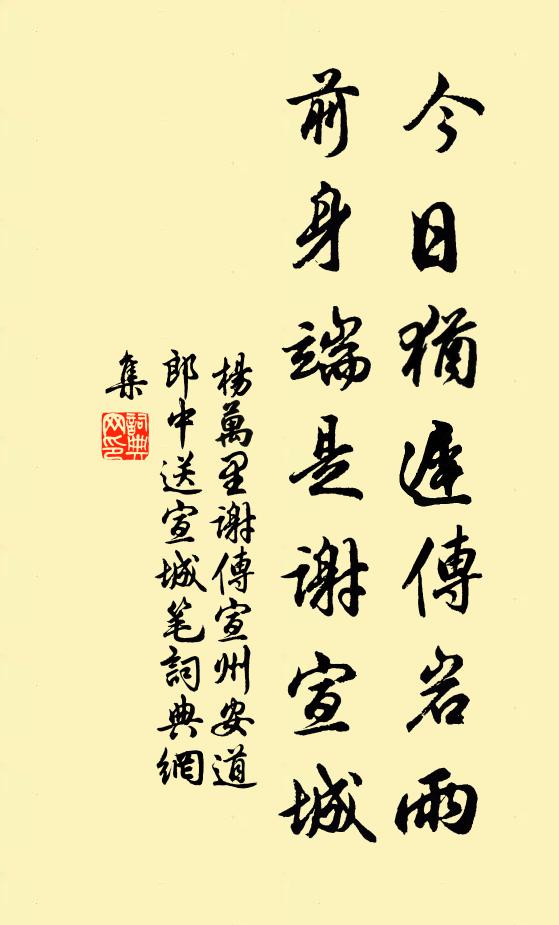 今日猶遲傅岩雨
前身端是謝宣城
楊萬里謝傅宣州安道
郎中送宣城笔詞典網
集
詞典
网印